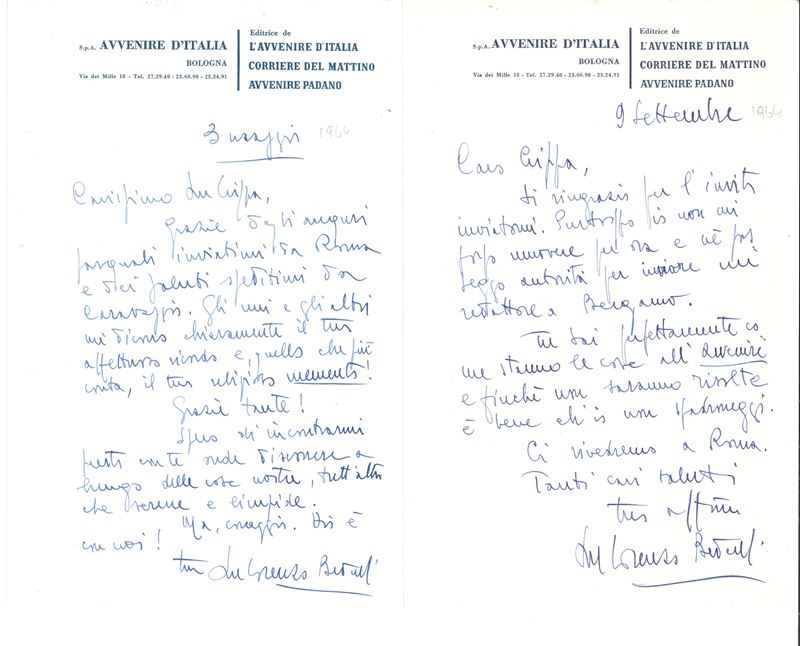 S.p.A. AVVENIRE D'ITALIA
BOLOGNA
Via dei Mille 18 - Tel. 27.29.40 - 23.60.90 - 23.24.91
Editrice de
L'AVVENIRE D'ITALIA
CORRIERE DEL MATTINO
AVVENIRE PADANO
3 maggio 1964
Carissimo Don Crippa,
Grazie degli auguri
pasquali inviatimi da Roma
e dei saluti speditimi da
Caravaggio. Gli uni e gli altri
mi dicono chiaramente il tuo
affettuoso ricordo e, quello che più
conta, il tuo religioso memento!
Grazie tante!
Spero di incontrarmi
presto con te onde discorrere a
lungo delle cose nostre, tutt'altro
che serene e limpide.
Ma, coraggio. Dio è
con noi!
tuo Don Lorenzo Bedeschi
S.p.A. AVVENIRE D'ITALIA
BOLOGNA
Via dei Mille 18 - Tel. 27.29.40 - 23.60.90 - 23.24.91
Editrice de
L'AVVENIRE D'ITALIA
CORRIERE DEL MATTINO
AVVENIRE PADANO
9 Settembre 1964
Caro Crippa,
ti ringrazio per l'invito
inviatomi. Purtroppo io non mi
posso muovere per ora e né pos
seggo autorità per inviare un
redattore a Bergamo.
Tu sai perfettamente co
me stanno le cose all'Avvenire
e finché non saranno risolte
è bene ch'io non spadroneggi.
Ci rivedremo a Roma.
Tanti cari saluti
tuo aff.mo
Don Lorenzo Bedeschi